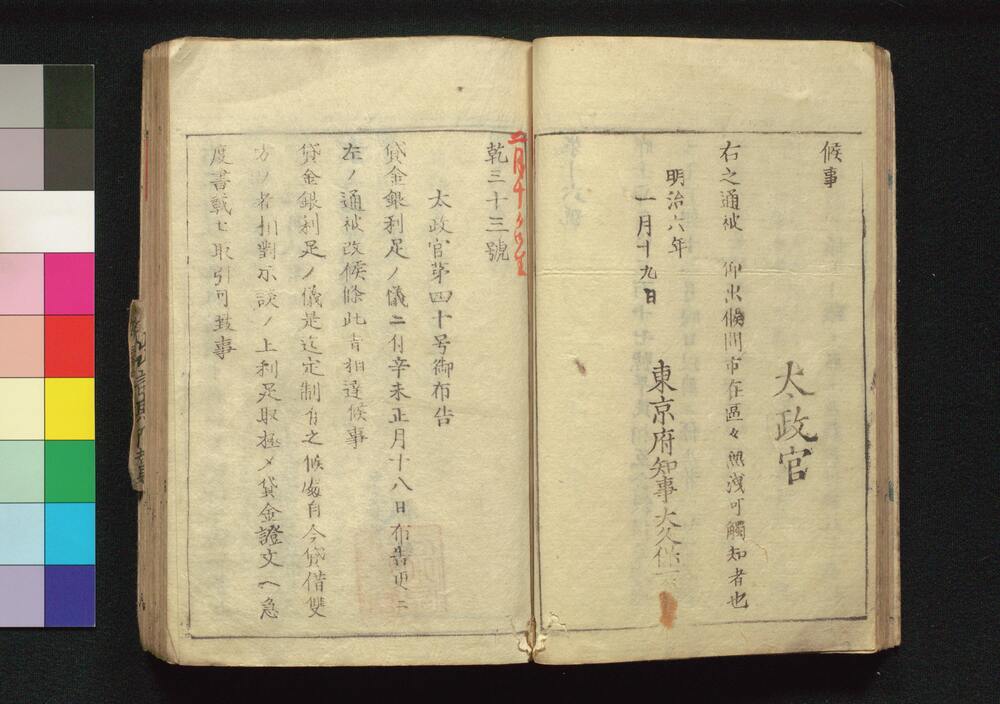 候事
太政官
右之通被 仰出候間市在區々無洩可觸知者也
明治六年
一月十九日
東京府知事大久保一
乾三十三號
太政官第四十号御布告
貸金銀利足ノ儀ニ付辛未正月十八日布告更ニ
左ノ通被改候條此旨相達候事
貸金銀利足ノ儀是迄定制有之候處自今貸借雙
方ノ者相對示談ノ上利足取極メ貸金證文ヘ急
度書載セ取引可致事